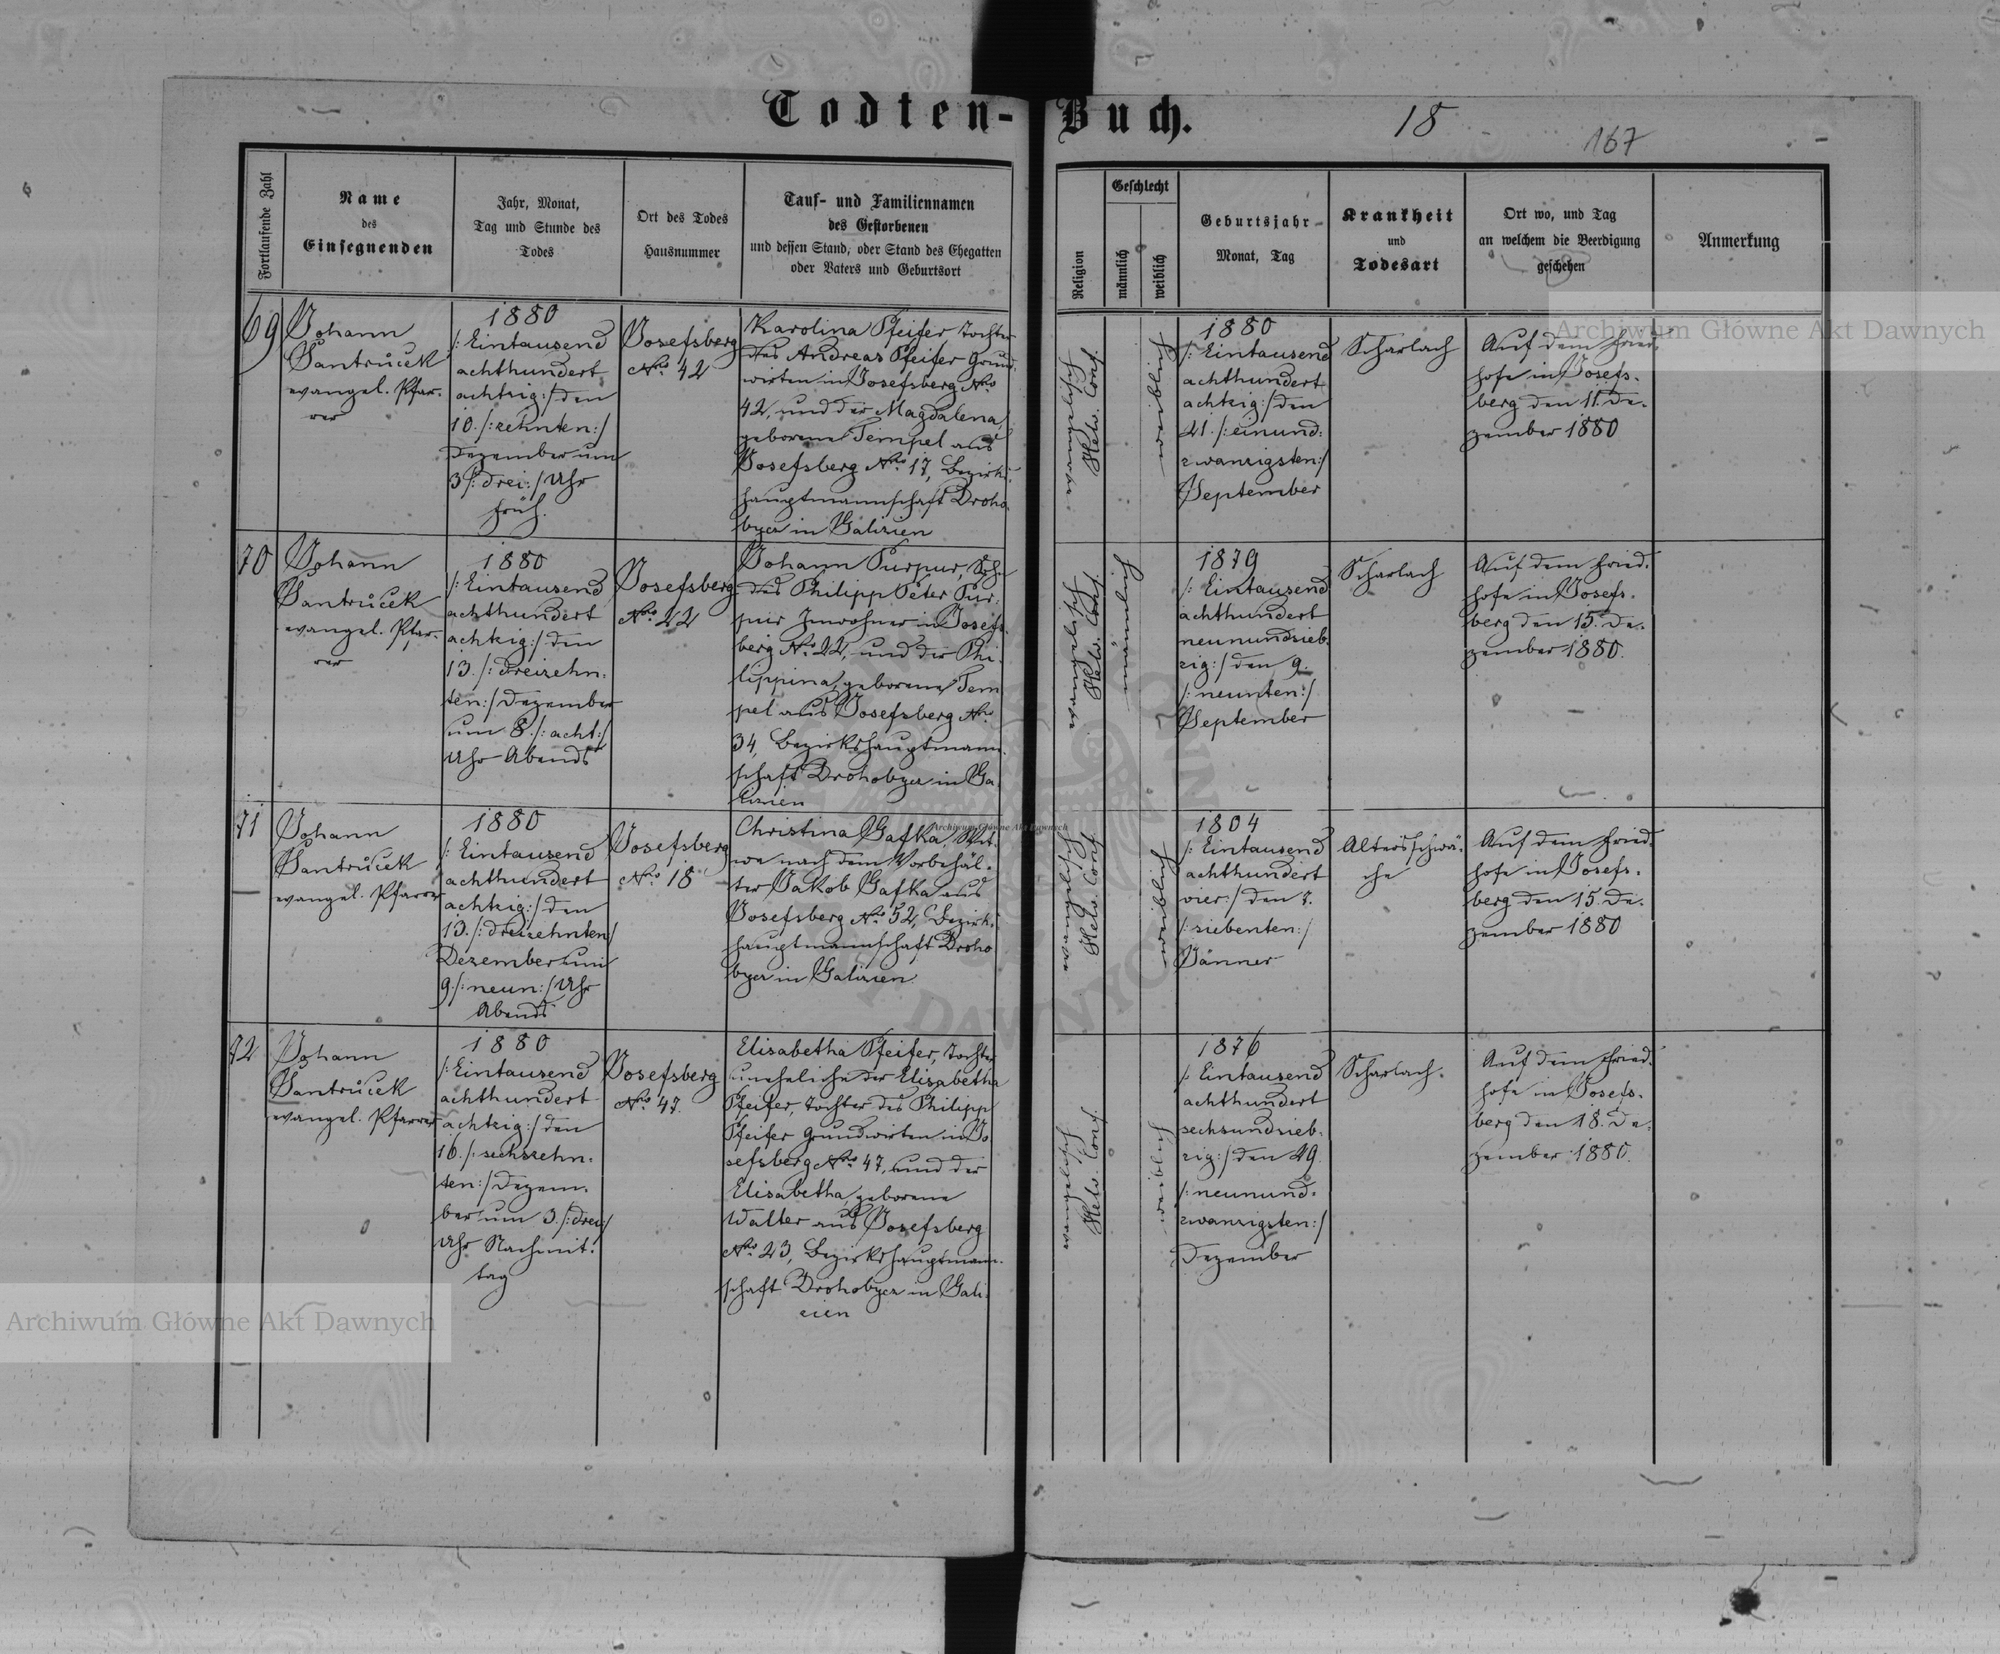 Todten-Buch.
18
167
Fortlaufende Zahl
Name
des
Einsegnenden
Jahr, Monat,
Tag und Stunde des
Todes
Ort des Todes
Hausnummer
Tauf- und Familiennamen
des Gestorbenen
und dessen Stand, oder Stand des Ehegatten
oder Vaters und Geburtsort
Religion
Geschlecht
männlich
weiblich
Geburtsjahr
Monat, Tag
Krankheit
und
Todesart
Ort wo, und Tag
an welchem die Beerdigung
geschehen
Anmerkung
69
Johann
Santrůček
evangel. Pfar-
rer
1880
/: Eintausend
achthundert
achtzig :/ den
10. /: zehnten :/
Dezember um
3 /: drei :/ Uhr
früh.
Josefsberg
Nro. 42
Karolina Pfeifer, Tochter
des Andreas Pfeifer Grund-
wirten in Josefsberg Nro.
42, und der Magdalena,
geborene Tempel aus
Josefsberg Nro. 17, Bezirks-
hauptmannschaft Droho-
bycz in Galizien
Helv. Conf.
weiblich
1880
/: Eintausend
achthundert
achtzig :/ den
21. /: einund-
zwanzigsten :/
September
Scharlach
Auf dem Fried-
hofe in Josefs-
berg den 11. De-
zember 1880
70
Johann
Santrůček
evangel. Pfar-
rer
1880
/: Eintausend
achthundert
achtzig :/ den
13. /: dreizehn-
ten :/ Dezember
um 8. /: acht :/
Uhr Abends
Josefsberg
Nro. 22
Johann Purpur, Sohn
des Philipp Peter Pur-
pur Inwohner in Josefs-
berg Nro. 22, und der Phi-
lippina, geborene Tem-
pel aus Josefsberg Nro.
34, Bezirkshauptmann-
schaft Drohobycz in Ga-
lizien
Helv. Conf.
männlich
1879
/: Eintausend
achthundert
neunundsieb-
zig :/ den 9.
/: neunten :/
September
Scharlach
Auf dem Fried-
hofe in Josefs-
berg den 15. De-
zember 1880.
71
Johann
Santrůček
evangel. Pfarrer
1880
/: Eintausend
achthundert
achtzig :/ den
13. /: dreizehnten :/
Dezember um
9. /: neun :/ Uhr
Abends
Josefsberg
Nro. 18
Christina Gafka, Wit-
we nach dem Vorbehäl-
ter Jakob Gafka aus
Josefsberg Nro. 52, Bezirks-
hauptmannschaft Droho-
bycz in Galizien.
Helv. Conf.
weiblich
1804
/: Eintausend
achthundert
vier :/ den 7.
/: siebenten :/
Jänner
Altersschwä-
che
Auf dem Fried-
hofe in Josefs-
berg den 15. De-
zember 1880
72
Johann
Santrůček
evangel. Pfarrer
1880
/: Eintausend
achthundert
achtzig :/ den
16. /: sechszehn-
ten :/ Dezem-
ber um 3. /: drei :/
Uhr Nachmit-
tag
Josefsberg
Nro. 47.
Elisabetha Pfeifer, Tochter
uneheliche der Elisabetha
Pfeifer, Tochter des Philipp
Pfeifer Grundwirten in Jo-
sefsberg Nro. 47, und der
Elisabetha, geborene
Walter aus Josefsberg
Nro. 23, Bezirkshauptmann-
schaft Drohobycz in Gali-
zien
Helv. Conf.
weiblich
1876
/: Eintausend
achthundert
sechsundsieb-
zig :/ den 29.
/: neunund-
zwanzigsten :/
Dezember
Scharlach.
Auf dem Fried-
hofe in Josefs-
berg den 18. De-
zember 1880.
Archiwum Główne Akt Dawnych
Archiwum Główne Akt Dawnych
Archiwum Główne Akt Dawnych